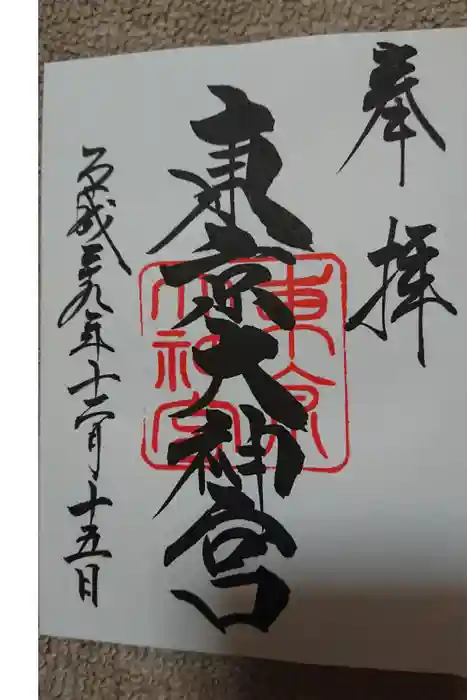 奉拝
東京大神宮
東京大神宮
平成二十九年十二月十五日